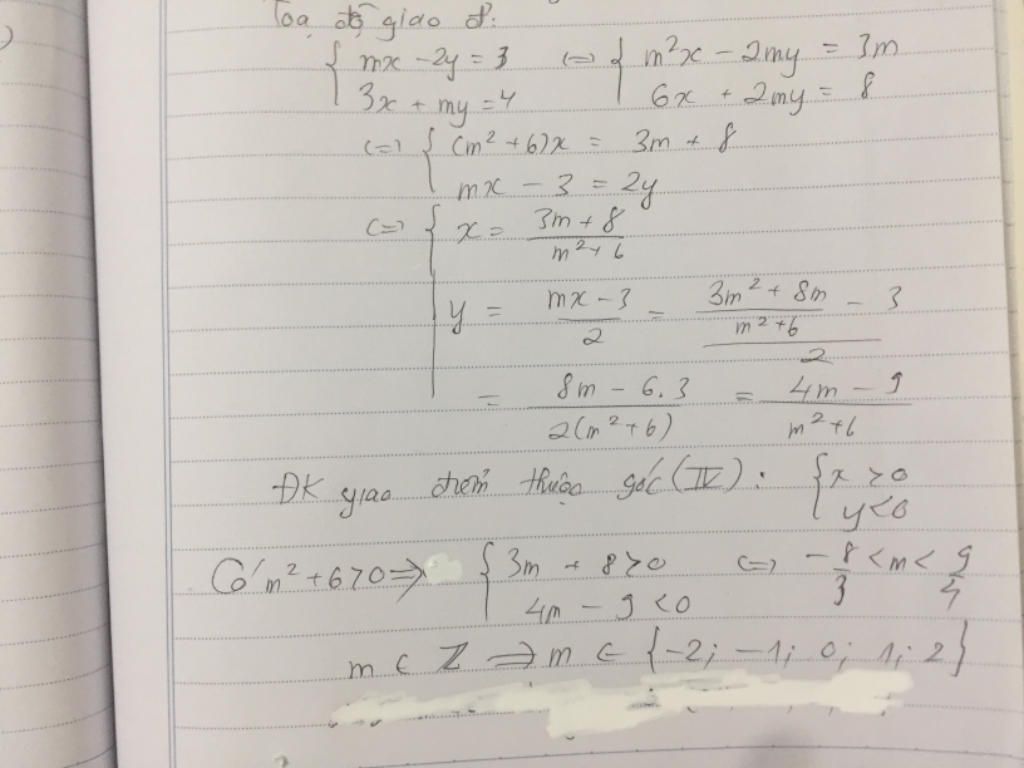 Toạ độ giao đ:
{ mx - 2y = 3 (=) { m²x - 2my = 3m
3x + my = 4 6x + 2my = 8
(=) { (m² + 6)x = 3m + 8
mx - 3 = 2y
(=) { x = (3m + 8)/(m² + 6)
y = (mx - 3)/2 = ((3m² + 8m)/(m² + 6) - 3)/2
= (8m - 6.3)/(2(m² + 6)) = (4m - 9)/(m² + 6)
ĐK giao điểm thuộc góc (IV): { x > 0
y < 0
Có m² + 6 > 0 => { 3m + 8 > 0 (=) -8/3 < m < 9/4
4m - 9 < 0
m ∈ Z => m ∈ {-2; -1; 0; 1; 2}